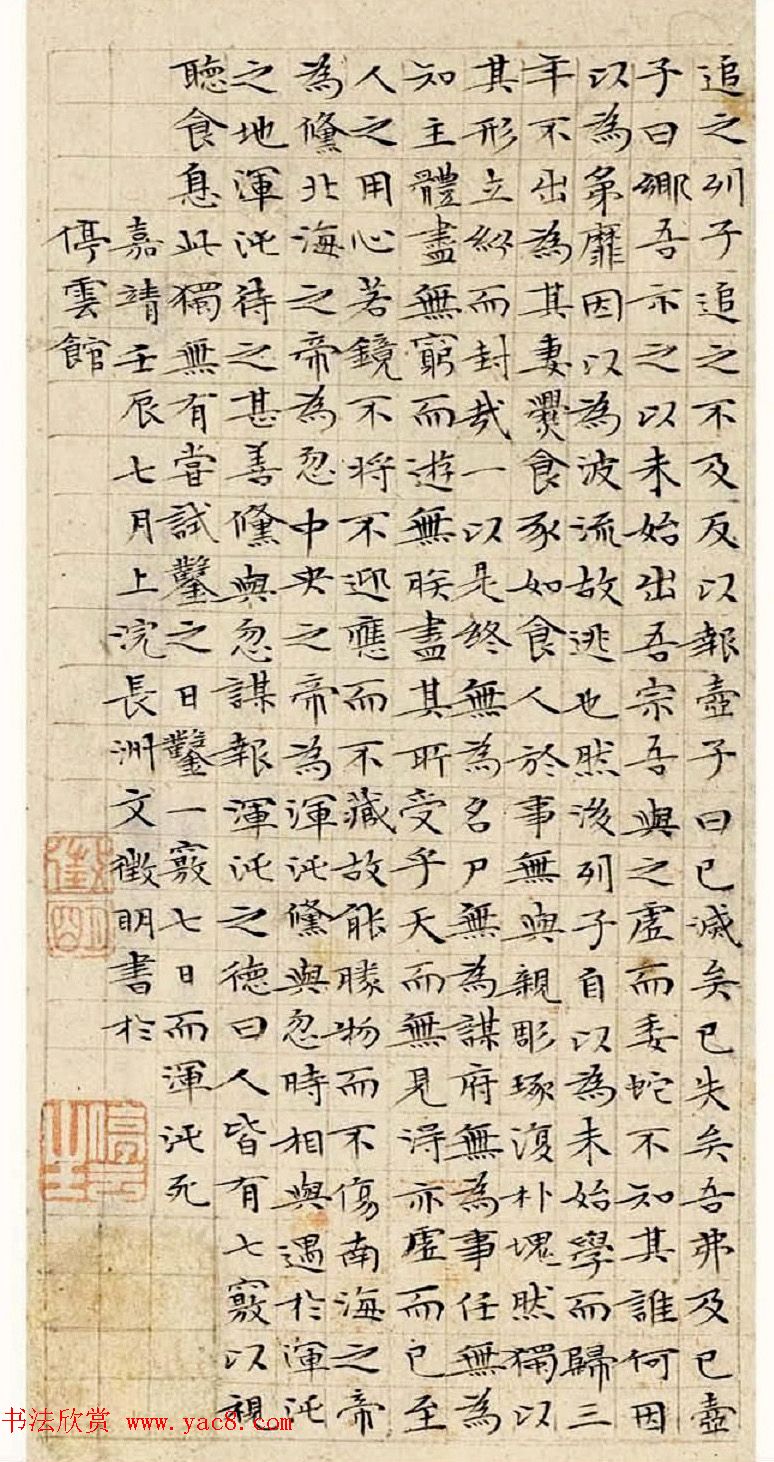 追之列子追之不及反以報壺子曰已滅矣已失矣吾弗及已壺
子曰鄉吾示之以未始出吾宗吾與之虛而委蛇不知其誰何因
以為弟靡因以為波流故逃也然後列子自以為未始學而歸三
年不出為其妻爨食豕如食人於事無與親彫琢復朴塊然獨以
其形立紛而封哉一以是終無為名尸無為謀府無為事任無為
知主體盡無窮而遊無朕盡其所受乎天而無見得亦虛而已至
人之用心若鏡不將不迎應而不藏故能勝物而不傷南海之帝
為儵北海之帝為忽中央之帝為渾沌儵與忽時相與遇於渾沌
之地渾沌待之甚善儵與忽謀報渾沌之德曰人皆有七竅以視
聽食息此獨無有嘗試鑿之日鑿一竅七日而渾沌死
嘉靖壬辰七月上浣長洲文徵明書於
停雲館
徵明
停雲生
书法欣赏 www.yac8.com